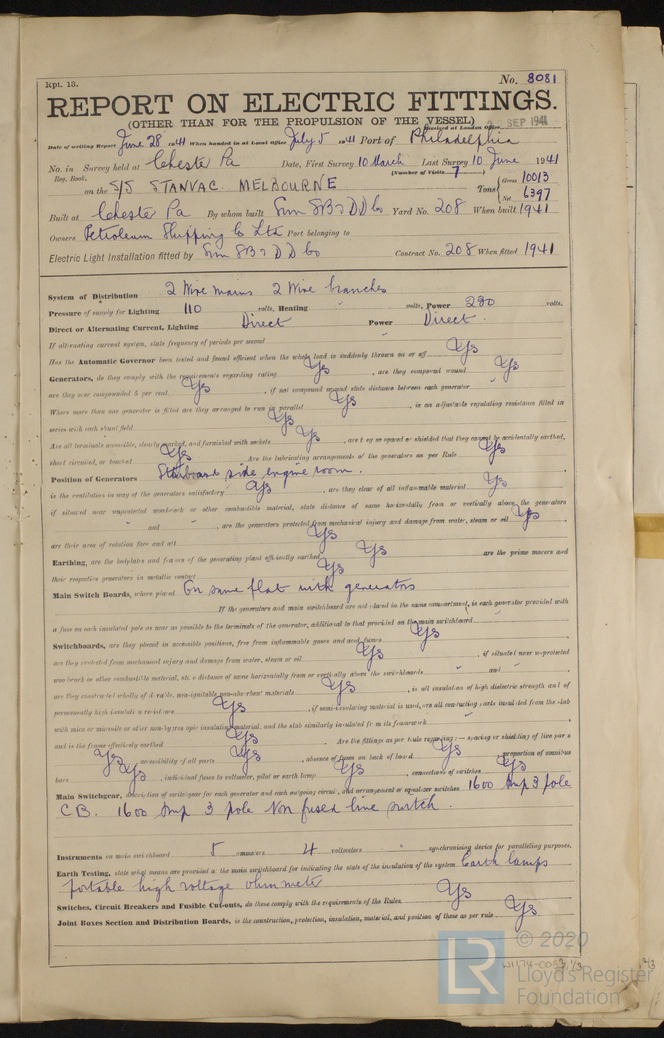 Rpt. 13.
No. 8081
REPORT ON ELECTRIC FITTINGS.
(OTHER THAN FOR THE PROPULSION OF THE VESSEL)
Received at London Office SEP 1941
Date of writing Report June 28 1941 When handed in at Local Office July 5 1941 Port of Philadelphia
No. in Survey held at Chester Pa Date, First Survey 10 March Last Survey 10 June 1941
Reg. Book. (Number of Visits 7)
on the S/S STANVAC MELBOURNE Tons { Gross 10013
Net 6397
Built at Chester Pa By whom built Sun SB & DD Co Yard No. 208 When built 1941
Owners Petroleum Shipping Co Ltd Port belonging to
Electric Light Installation fitted by Sun SB & DD Co Contract No. 208 When fitted 1941
System of Distribution 2 Wire mains 2 Wire branches
Pressure of supply for Lighting 110 volts, Heating volts, Power 230 volts.
Direct or Alternating Current, Lighting Direct Power Direct.
If alternating current system, state frequency of periods per second
Has the Automatic Governor been tested and found efficient when the whole load is suddenly thrown on or off Yes
Generators, do they comply with the requirements regarding rating Yes, are they compound wound Yes
are they over compounded 5 per cent. Yes, if not compound wound state distance between each generator
Where more than one generator is fitted are they arranged to run in parallel Yes, is an adjustable regulating resistance fitted in
series with each shunt field Yes
Are all terminals accessible, clearly marked, and furnished with sockets Yes, are they so spaced or shielded that they cannot be accidentally earthed,
short circuited, or touched Yes Are the lubricating arrangements of the generators as per Rule Yes
Position of Generators Starboard side engine room.
is the ventilation in way of the generators satisfactory Yes, are they clear of all inflammable material Yes
if situated near unprotected woodwork or other combustible material, state distance of same horizontally from or vertically above the generators
and , are the generators protected from mechanical injury and damage from water, steam or oil Yes
are their axes of rotation fore and aft Yes
Earthing, are the bedplates and frames of the generating plant efficiently earthed Yes are the prime movers and
their respective generators in metallic contact Yes
Main Switch Boards, where placed On same flat with generators
If the generators and main switchboard are not placed in the same compartment, is each generator provided with
a fuse on each insulated pole as near as possible to the terminals of the generator, additional to that provided on the main switchboard
Switchboards, are they placed in accessible positions, free from inflammable gases and acid fumes Yes
are they protected from mechanical injury and damage from water, steam or oil Yes, if situated near unprotected
woodwork or other combustible material, state distance of same horizontally from or vertically above the switchboards and
are they constructed wholly of durable, non-ignitable non-absorbent materials Yes, is all insulation of high dielectric strength and of
permanently high insulation resistance Yes, if semi-insulating material is used, are all conducting parts insulated from the slab
with mica or micanite or other non-hygroscopic insulating material, and the slab similarly insulated from its framework
and is the frame effectively earthed Yes Are the fittings as per Rule regarding:— spacing or shielding of live parts
Yes, accessibility of all parts Yes, absence of fuses on back of board Yes, proportion of omnibus
bars Yes, individual fuses to voltmeter, pilot or earth lamp Yes, connections of switches Yes
Main Switchgear, description of switchgear for each generator and each outgoing circuit, and arrangement of equalizer switches 1600 Amp 3 pole
C B. 1600 Amp 3 pole Non fused line switch.
Instruments on main switchboard 5 ammeters 4 voltmeters synchronising device for paralleling purposes.
Earth Testing, state what means are provided at the main switchboard for indicating the state of the insulation of the system Earth lamps
portable high voltage ohmmeter
Switches, Circuit Breakers and Fusible Cut-outs, do these comply with the requirements of the Rules Yes
Joint Boxes Section and Distribution Boards, is the construction, protection, insulation, material, and position of these as per rule Yes
© 2020
LR
Lloyd's Register
Foundation
W1174-0053 1/3